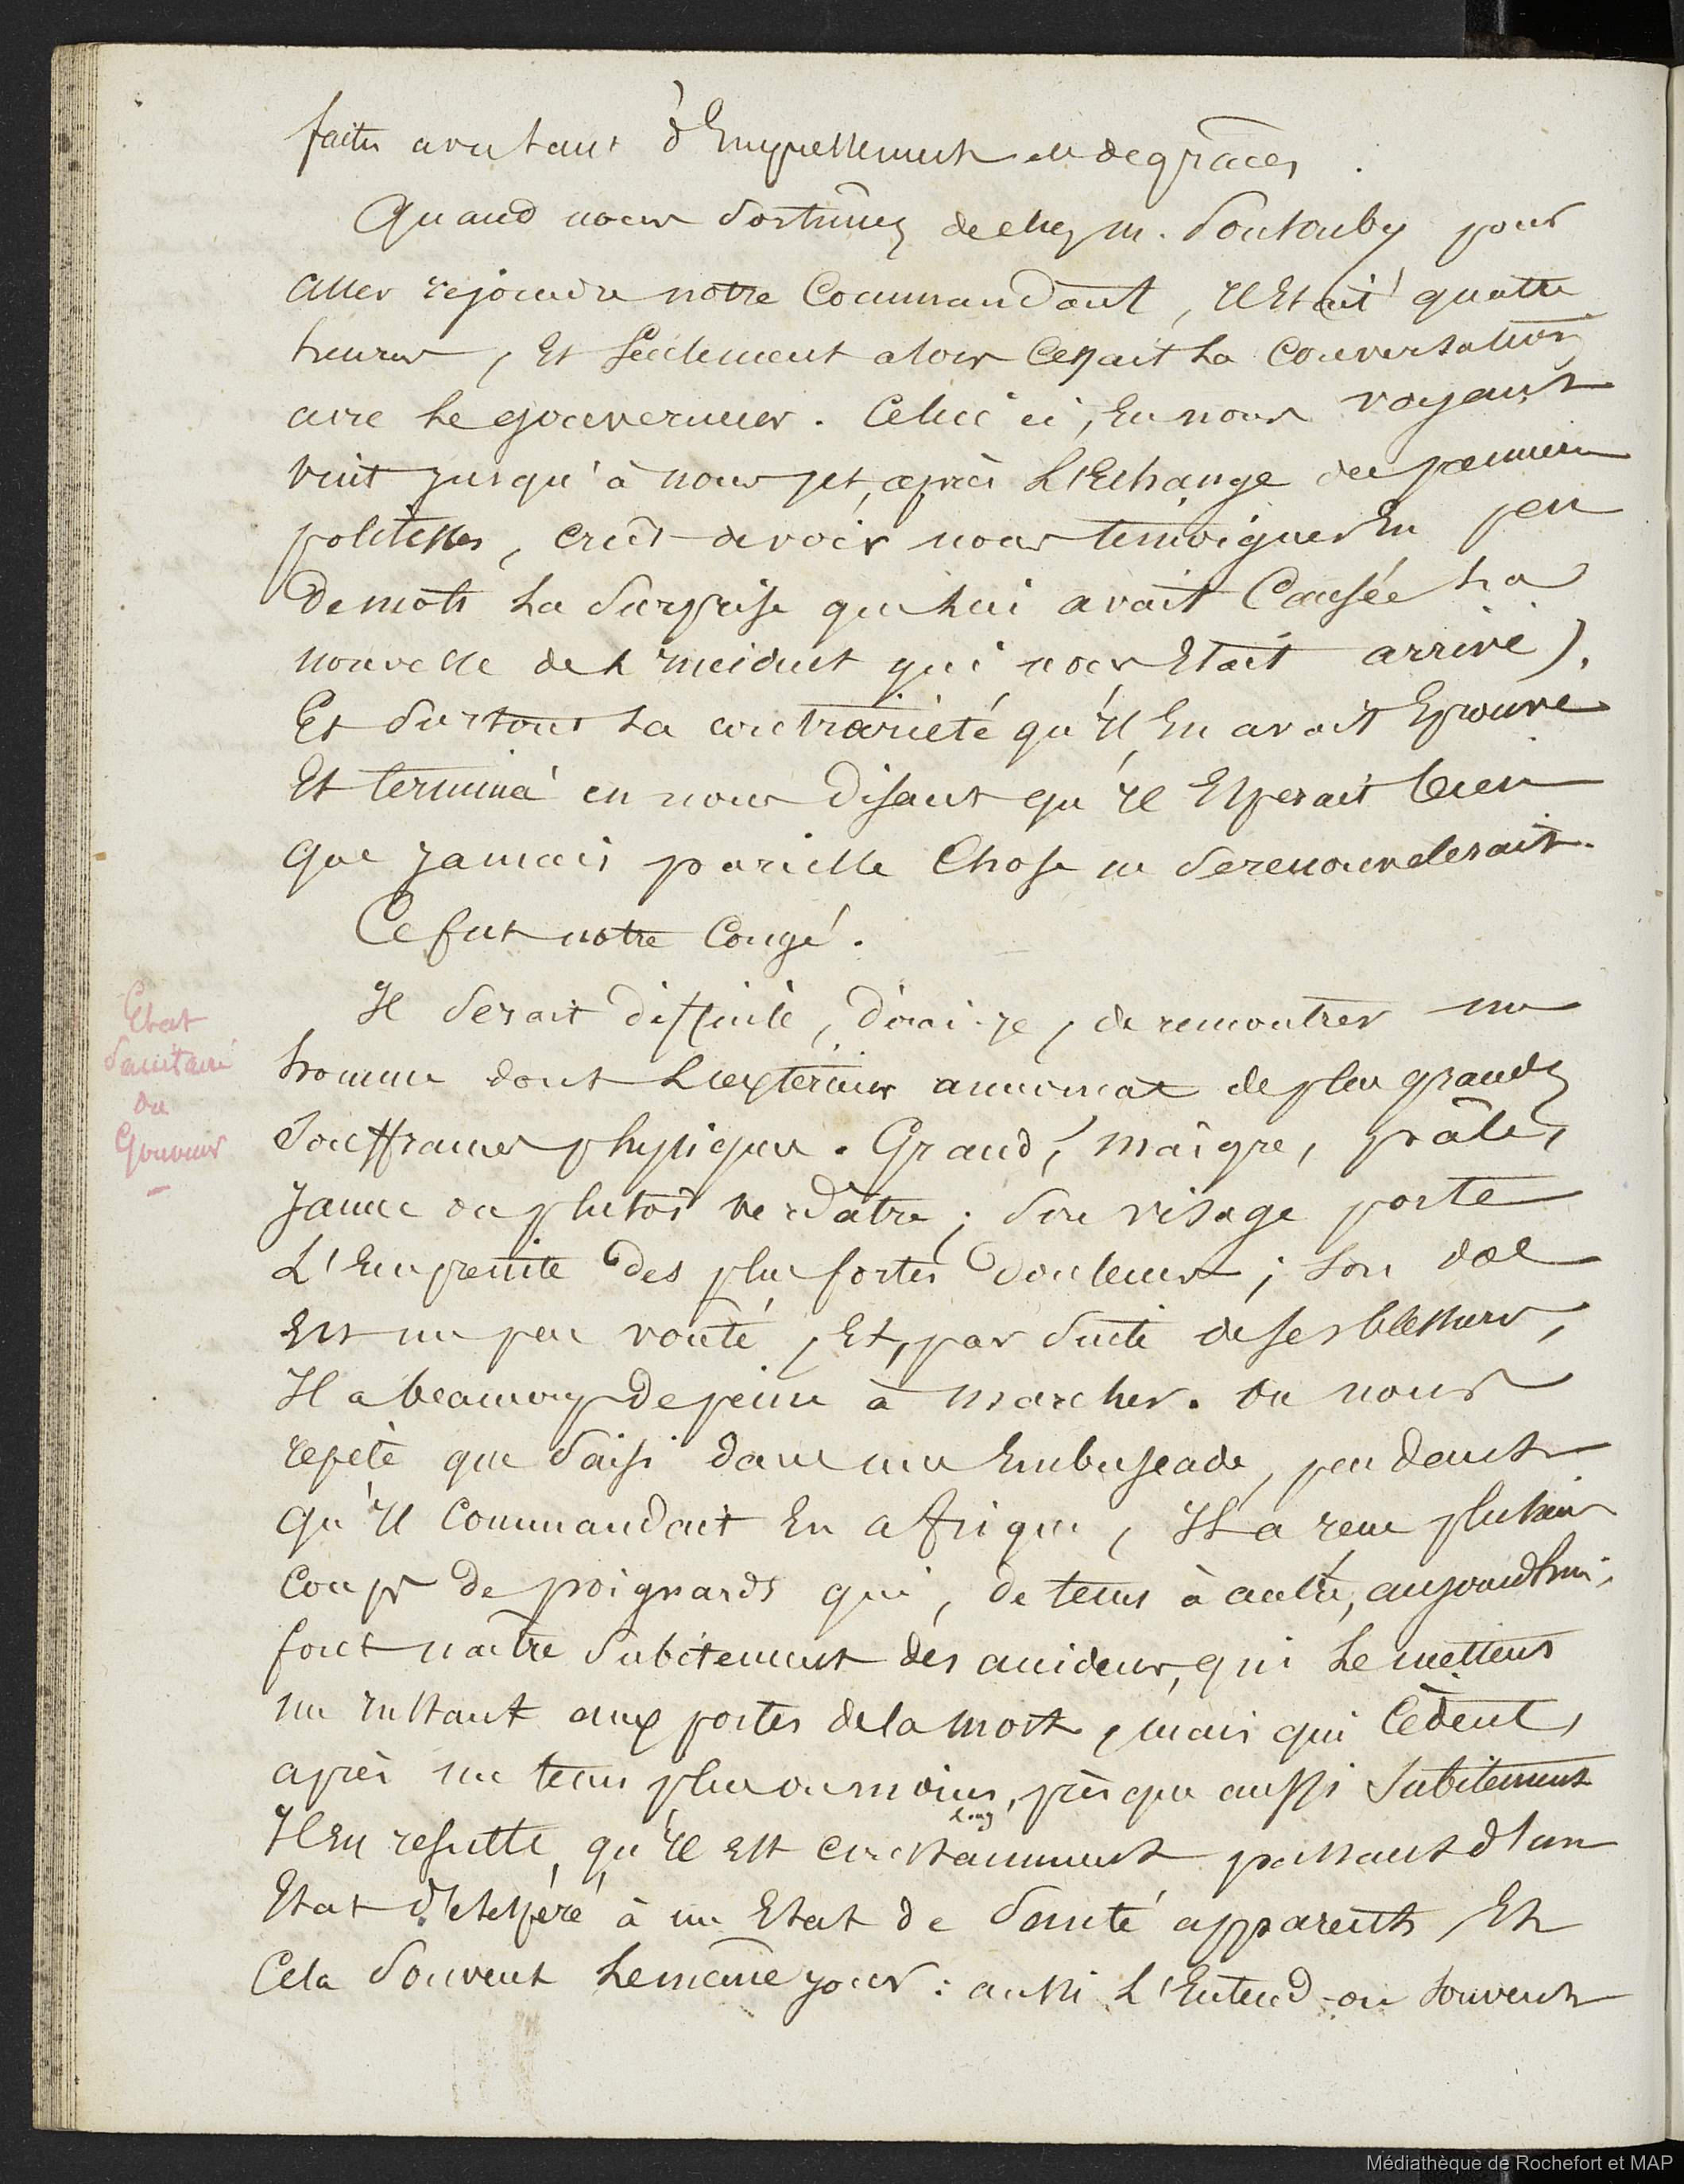 faites avec tant d'Empressement et de grâces.
Quand nous Sortîmes de chez m. Soutouby pour
aller rejoindre notre Commandant, Il Etait quatre
heures, Et Seulement alors Cessait La Conversation
avec Le gouverneur. Celui ci, En nous voyant
vint Jusqu'à nous, et, après L'Echange des premieres
politesses, crût devoir nous temoigner En peu
De mots La Surprise que Lui avait Causée La
nouvelle de L'Incident qui nous Etait arrivé,
Et Surtout La contrariété qu'Il En avait Eprouvé
Et termina en nous Disant qu'Il Esperait bien
que Jamais pareille Chose ne Se renouvelerait.
Ce fut notre Congé.
Etat
Sanitaire
du
Gouverneur
Il Serait difficile, dirai-je, de rencontrer un
homme dont L'exterieur annonçat de plus grandes
Souffrances physiques. Grand, maigre, pâle,
Jaune ou plutôt verdâtre; Son visage porte
L'Empreinte des plus fortes Douleurs; Son dos
Est un peu vouté, Et, par Suite de Ses blessures,
Il a beaucoup de peine à marcher. On nous
repète que Saisi dans une Embuscade, pendant
qu'Il Commandait En afrique, Il a reçu plusieurs
Coups de poignards qui, de tems à autre, aujourdhui,
font naître Subitement des accidens, qui Le mettent
un Instant aux portes de la mort, mais qui Cèdent,
après un tems plus ou moins long, presque aussi Subitement
Il En resulte, qu'Il Est constamment passant d'un
Etat désespéré à un Etat de Santé apparente, Et
Cela Souvent Le même jour: aussi L'Entend-on Souvent
Médiathèque de Rochefort et MAP